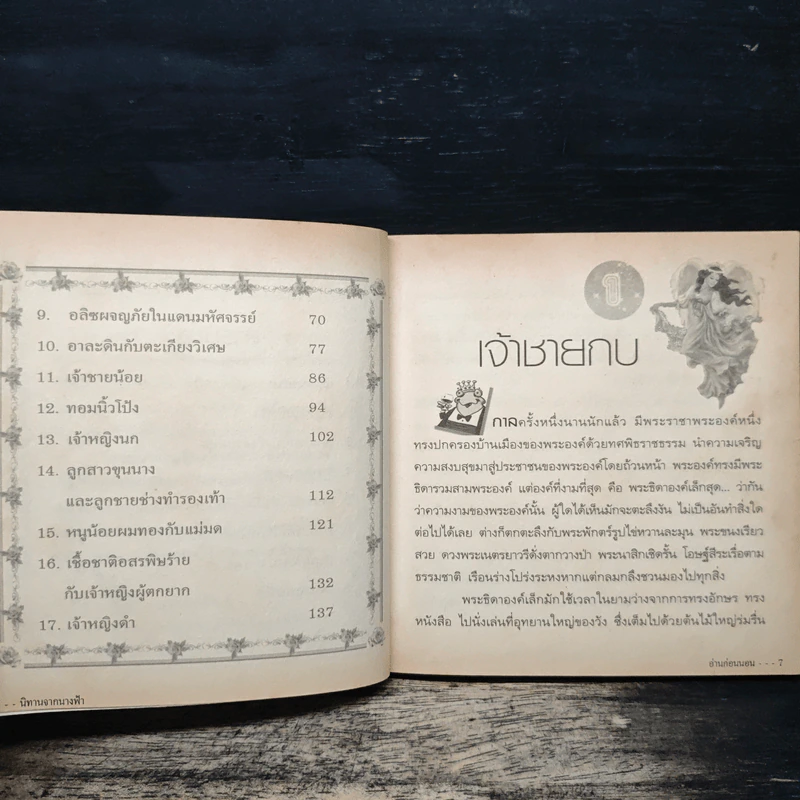 9. อลิซผจญภัยในแดนมหัศจรรย์ 70
10. อาละดินกับตะเกียงวิเศษ 77
11. เจ้าชายน้อย 86
12. ทอมนิ้วโป้ง 94
13. เจ้าหญิงนก 102
14. ลูกสาวขุนนาง
และลูกชายช่างทำรองเท้า 112
15. หนูน้อยผมทองกับแม่มด 121
16. เชื้อชาติอสรพิษร้าย
กับเจ้าหญิงผู้ตกยาก 132
17. เจ้าหญิงดำ 137
- - นิทานจากนางฟ้า
๑
เจ้าชายกบ
กาลครั้งหนึ่งนานนักแล้ว มีพระราชาพระองค์หนึ่ง
ทรงปกครองบ้านเมืองของพระองค์ด้วยทศพิธราชธรรม นำความเจริญ
ความสงบสุขมาสู่ประชาชนของพระองค์โดยถ้วนหน้า พระองค์ทรงมีพระ
ธิดารวมสามพระองค์ แต่องค์ที่งามที่สุด คือ พระธิดาองค์เล็กสุด... ว่ากัน
ว่าความงามของพระองค์นั้น ผู้ใดได้เห็นมักจะตะลึงงัน ไม่เป็นอันทำสิ่งใด
ต่อไปได้เลย ต่างก็ตกตะลึงกับพระพักตร์รูปไข่หวานละมุน พระขนงเรียว
สวย ดวงพระเนตรยาวรีดั่งตากวางป่า พระนาสิกเชิดรั้น โอษฐ์สีระเรื่อตาม
ธรรมชาติ เรือนร่างโปร่งระหงหากแต่กลมกลึงชวนมองไปทุกสิ่ง
พระธิดาองค์เล็กมักใช้เวลาในยามว่างจากการทรงอักษร ทรง
หนังสือ ไปนั่งเล่นที่อุทยานใหญ่ของวัง ซึ่งเต็มไปด้วยต้นไม้ใหญ่ร่มรื่น
อ่านก่อนนอน - - - 7